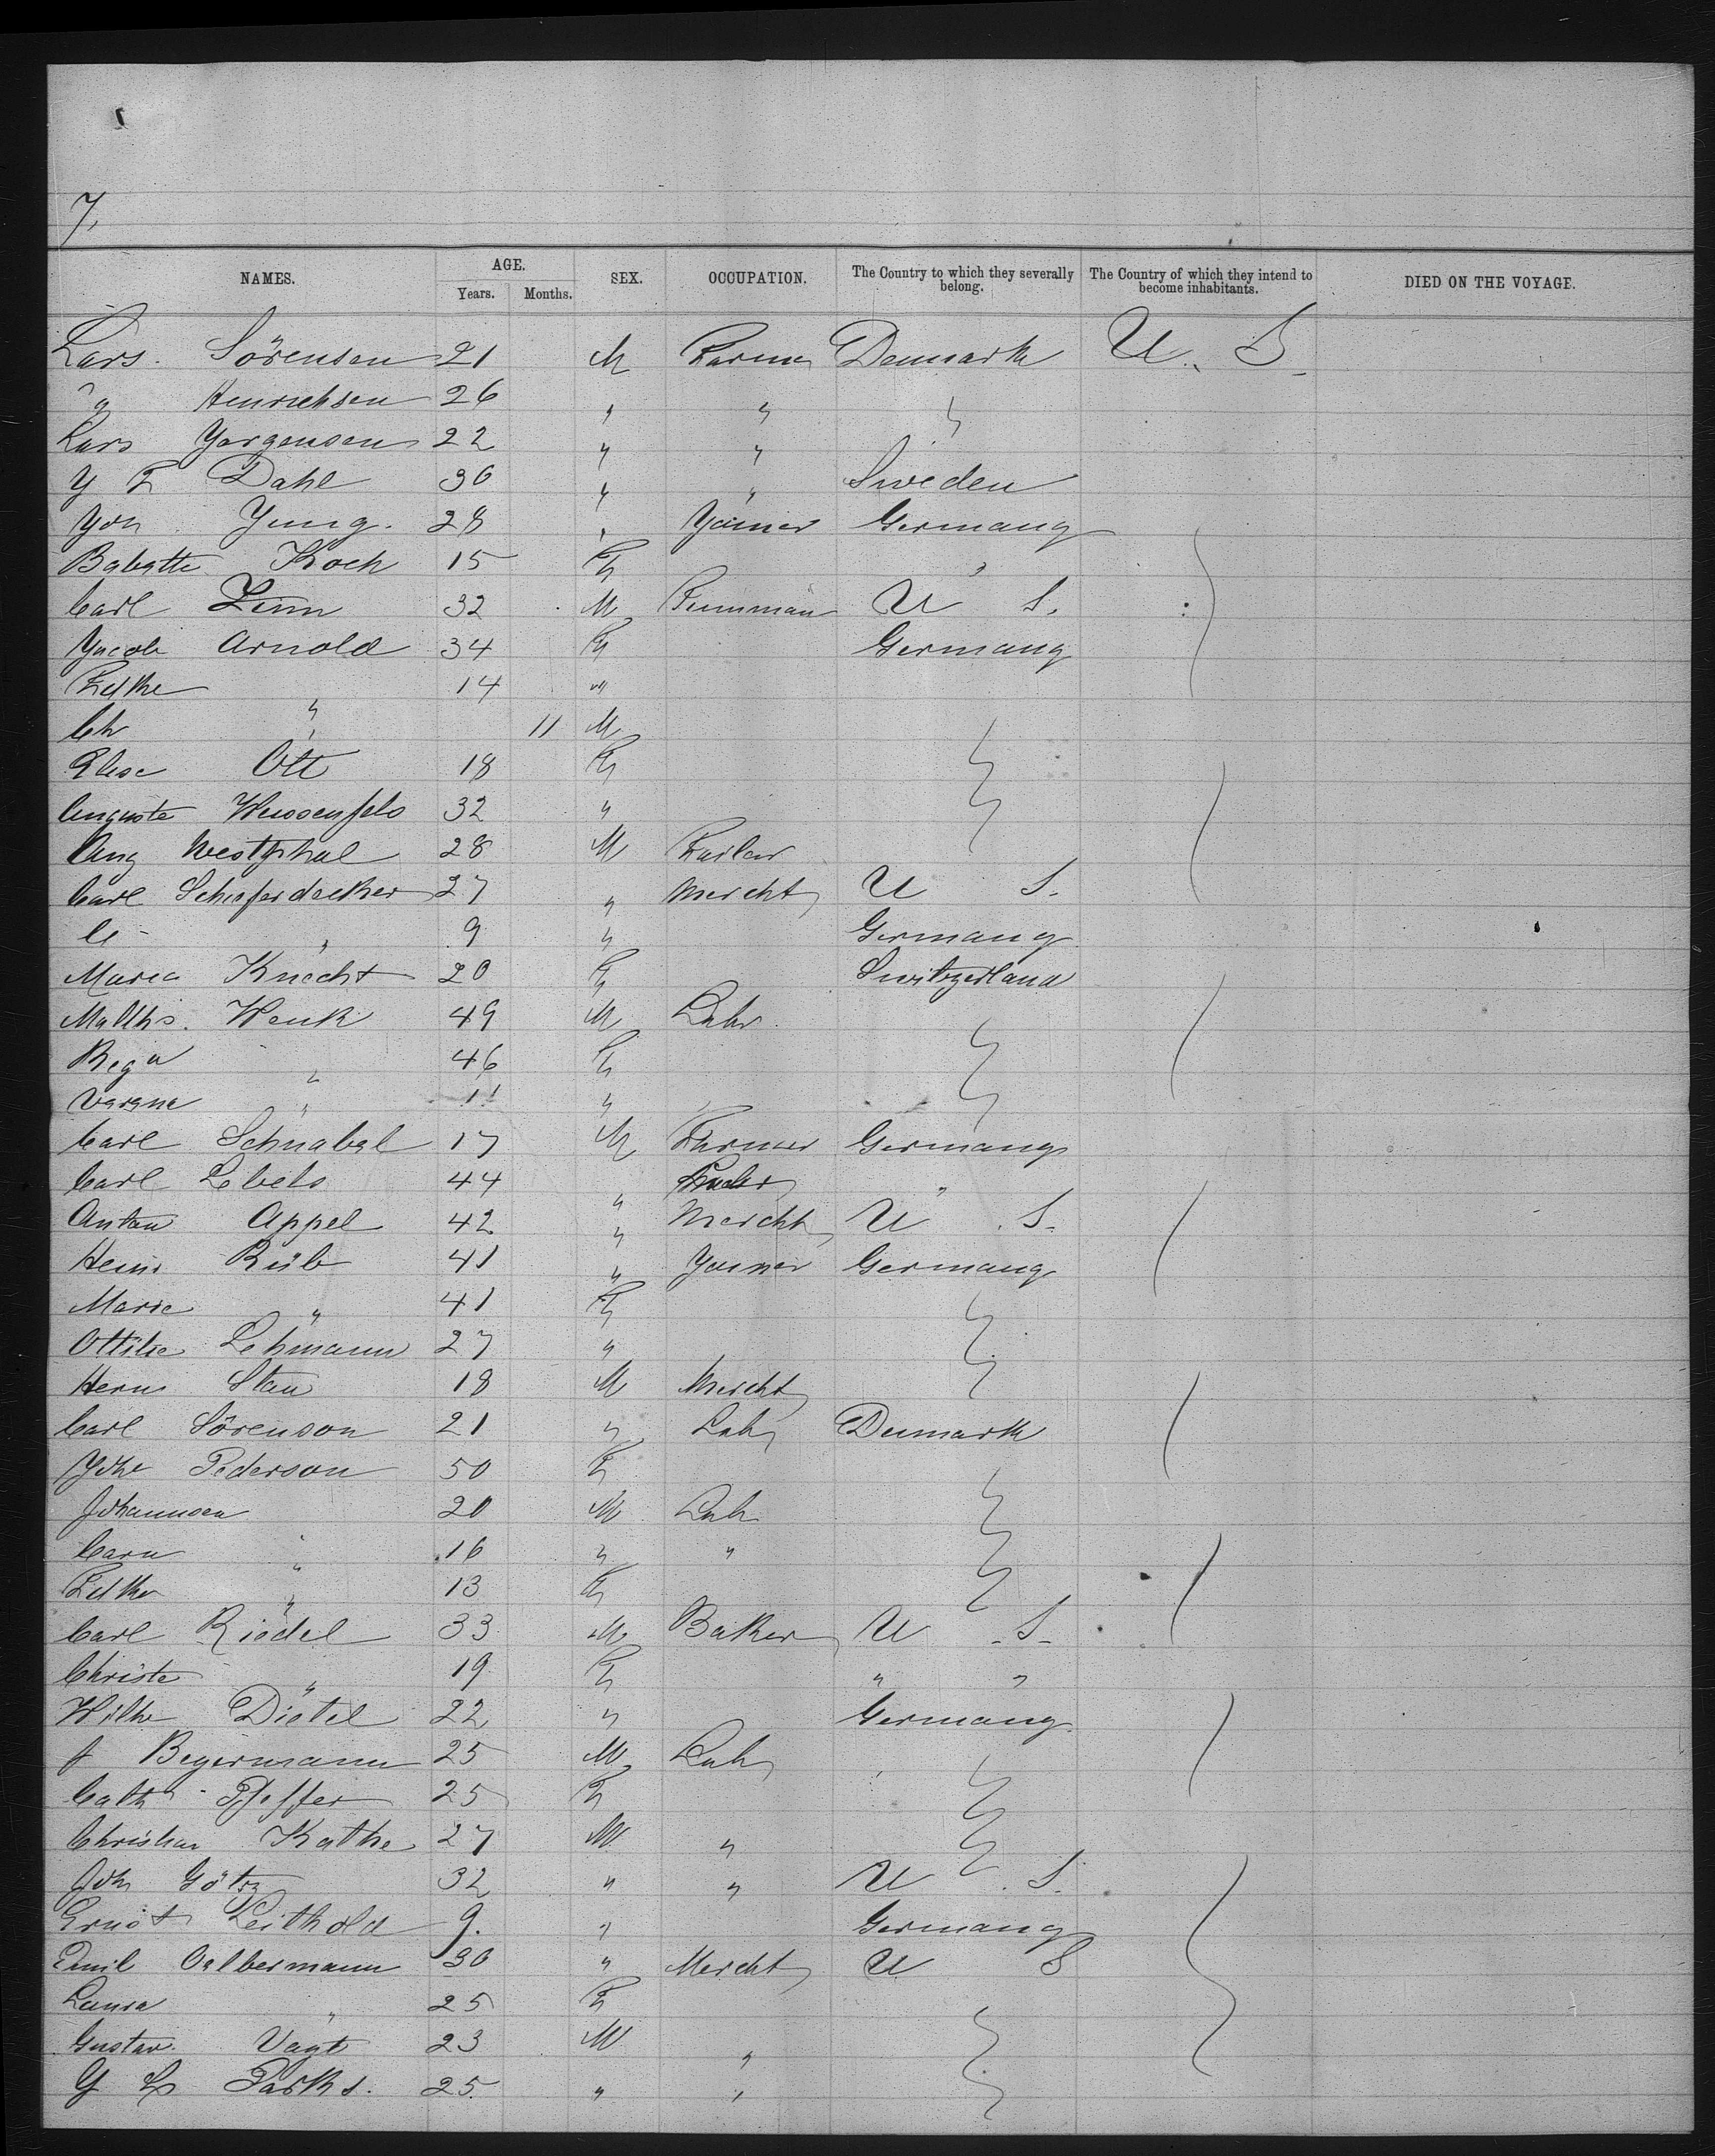 7,
NAMES. AGE. Years. Months. SEX. OCCUPATION. The Country to which they severally belong. The Country of which they intend to become inhabitants. DIED ON THE VOYAGE.
Lars Sörensen 21 M Farmer Denmark U. S.
" Henrichsen 26 " " "
Lars Yorgensen 22 " "
Y F Dahl 30 " " Sweden
Yoh Yung. 28 " Yoiner Germany
Babatte Koch 15 F "
Carl Zinn 32 M U S.
Yacob Arnold 34 F Germany
14 "
Ch " 11 M
Elise Ott 18 F
Auguste Weissenfels 32 "
Aug Westphal 28 M
Carl Schieferdecker 27 " Mercht U S.
" 9 " Germany
Maria Knecht 20 F Switzerland
Matths. Wenk 49 M Labr
Rega " 46 F
" 11 "
Carl Schnabel 17 M Farmer Germany
Carl 44 " "
Anton Appel 42 " Mercht U S.
Heinr Rüb 41 " Yoiner Germany
Marie " 41 F
Ottilie Lehmann 27 "
Herm Stau 18 M Mercht
Carl Sörenson 21 " Lab Denmark
Pederson 50 F
Johannsen 20 M Lab
" 16 " "
" 13 F
Carl Riedel 33 M Baker U. S.
Christe " 19 F " "
Wilhe Dietel 22 " Germany
F Beyermann 25 M Lab
Cath Pfeffer 25 F
Christian Kathe 27 M "
Joh Götz 32 " " U. S.
Ernst Leithold 9. " Germany
Emil Oelbermann 30 " Mercht U S
Laura " 25 F
Gustav Vogt 23 M "
Y L Parks. 25. " "